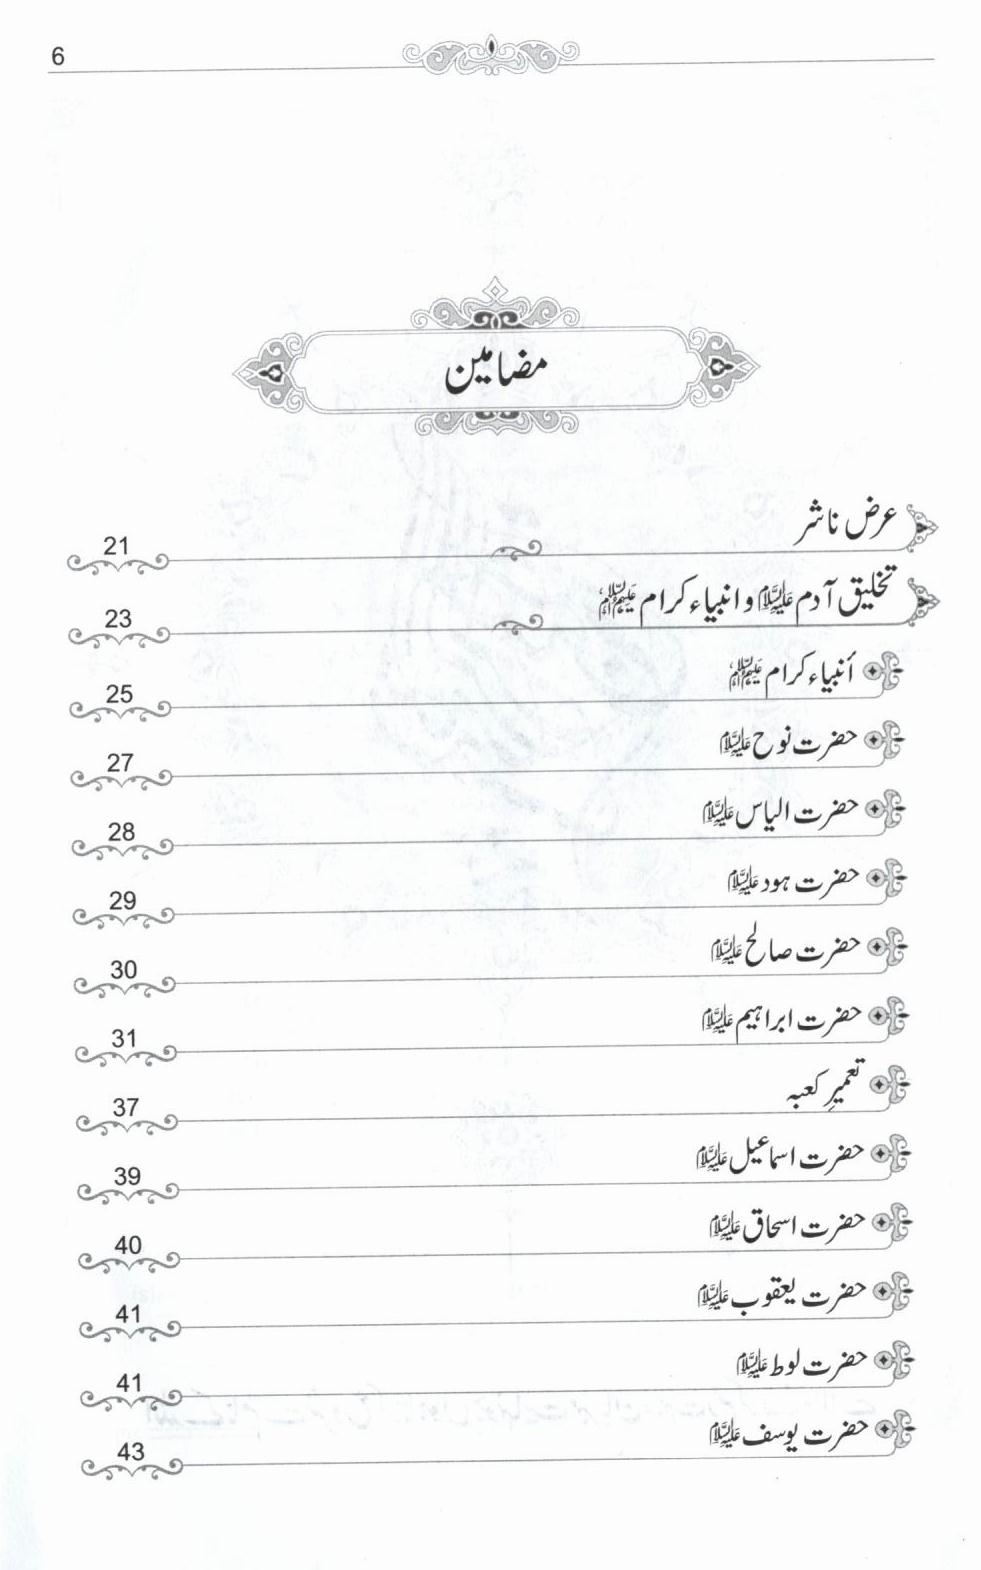 6
مضامین
عرض ناشر 21
تخلیق آدم علیہ السلام و انبیاء کرام علیہم السلام 23
أنبیاء کرام علیہم السلام 25
حضرت نوح علیہ السلام 27
حضرت الیاس علیہ السلام 28
حضرت ہود علیہ السلام 29
حضرت صالح علیہ السلام 30
حضرت ابراہیم علیہ السلام 31
تعمیرِ کعبہ 37
حضرت اسماعیل علیہ السلام 39
حضرت اسحاق علیہ السلام 40
حضرت یعقوب علیہ السلام 41
حضرت لوط علیہ السلام 41
حضرت یوسف علیہ السلام 43